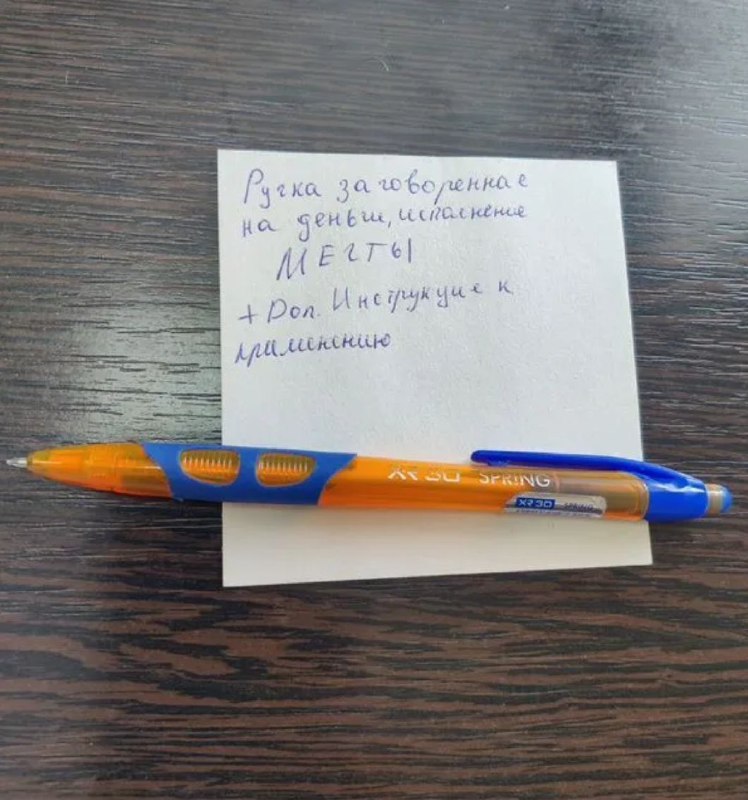 Ручка заговоренная
на деньги, исполнение
МЕЧТЫ
+ Доп. Инструкция к
применению
XR 30 SPRING
XR 30 SPRING